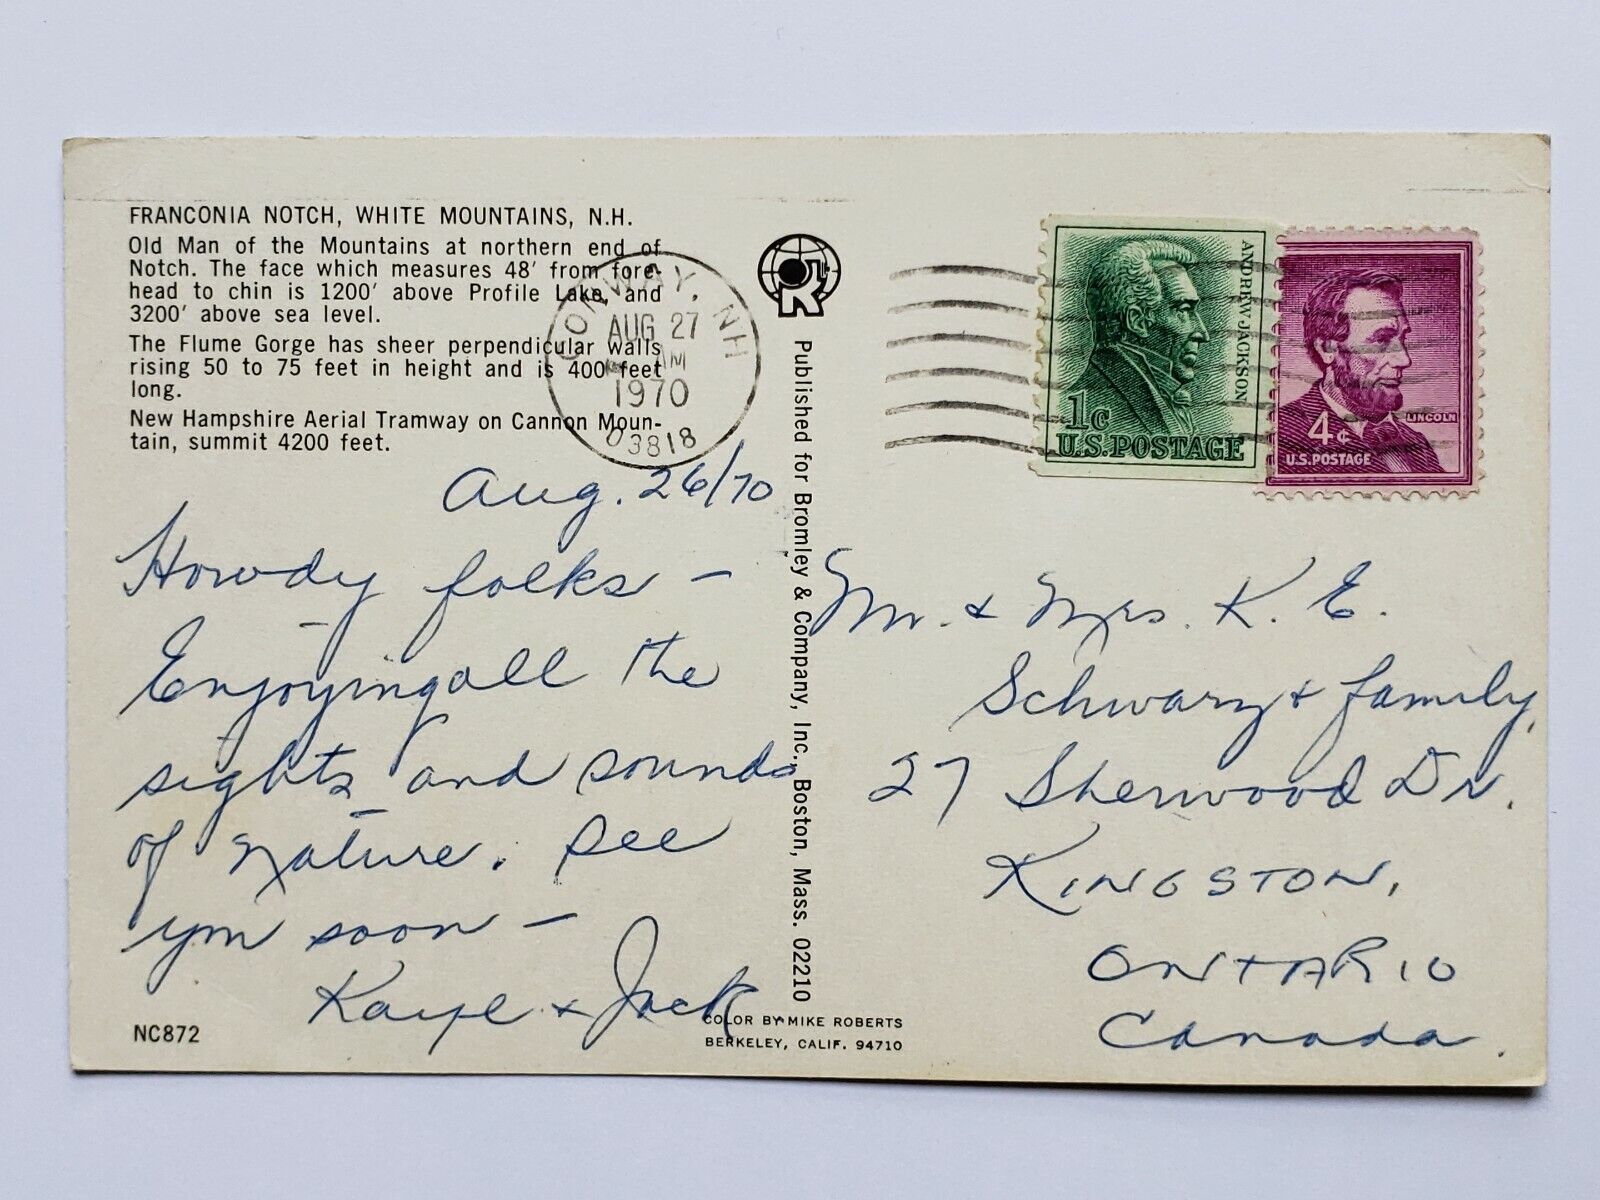 FRANCONIA NOTCH, WHITE MOUNTAINS, N.H.
Old Man of the Mountains at northern end of
Notch. The face which measures 48' from fore-
head to chin is 1200' above Profile Lake, and
3200' above sea level.
The Flume Gorge has sheer perpendicular walls
rising 50 to 75 feet in height and is 400 feet
long.
New Hampshire Aerial Tramway on Cannon Moun-
tain, summit 4200 feet.
CONWAY, NH
AUG 27
AM
1970
03818
Aug. 26/70
Howdy folks —
Enjoying all the
sights and sounds
of nature. See
you soon —
Kaye + Jack
NC872
Published for Bromley & Company, Inc., Boston, Mass. 02210
COLOR BY MIKE ROBERTS
BERKELEY, CALIF. 94710
ANDREW JACKSON
1c
U.S. POSTAGE
LINCOLN
4c
U.S. POSTAGE
Mr. & Mrs. K. E.
Schwarz & family,
27 Sherwood Dr.
KINGSTON,
ONTARIO
Canada.